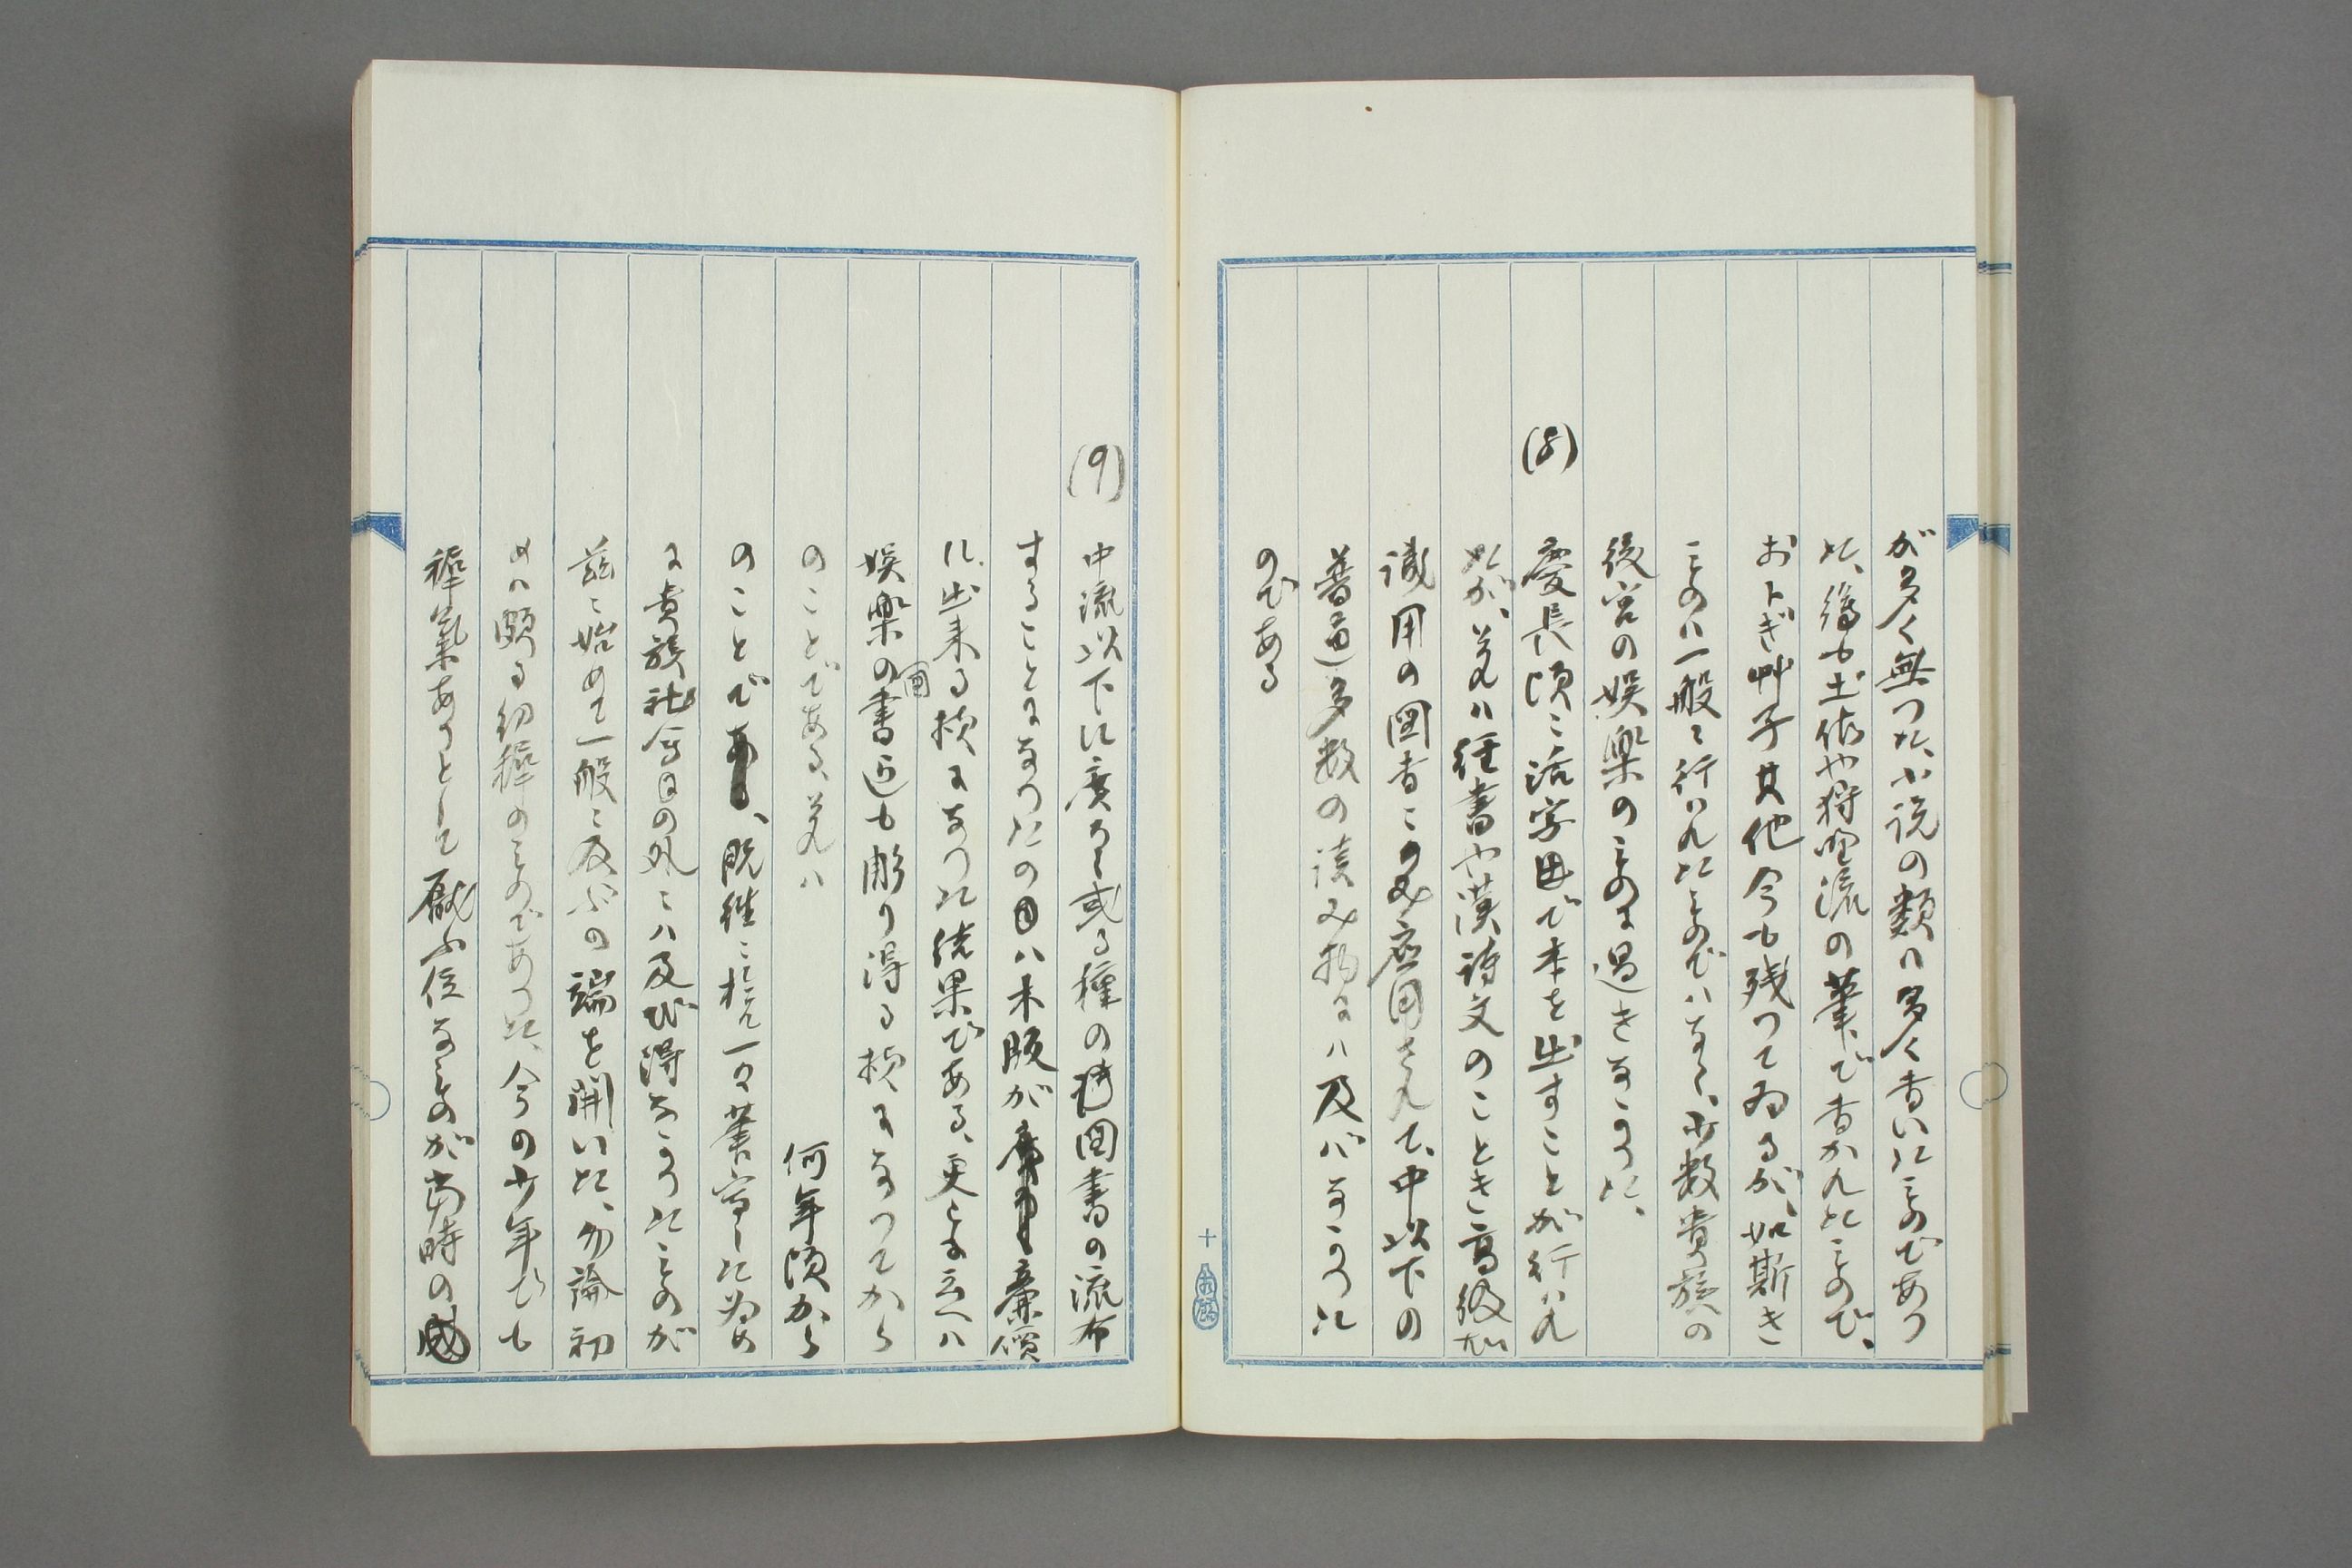 が多く無つた、小説の類ハ多く書いたものであつ
た、繪も土佐や狩野流の筆で書かれたもので、
おトぎ艸子其他今も残つてゐるが、如斯き
ものハ一般に行ハれたものでハなく、少数貴族の
後宮の娯樂のものに過きなかつた、
(8) 慶長頃に活字田で本を出すことが行ハれ
たが、是れハ経書や漢詩文のことき高級な
識用の図書にのみ應用されて、中以下の
普通多数の読み物にハ及バなかつた
のである
十
(9) 中流以下に廣く或る種の図書の流布
することになつたの日ハ木版が廉價
に出来る様になつた結果である、更に云へハ
娯樂の書画迄も彫り得る様になつてから
のことである、是れハ 何年頃から
のことで、既徃に於て一々筆写した為め
に貴族社会日の外にハ及び得なかつたものが
茲に始めて一般に及ぶの端を開いた、勿論初
めハ頗る幼稚のものであつた、今の少年でも
稚氣ありとして厭ふ位なものが当時の國